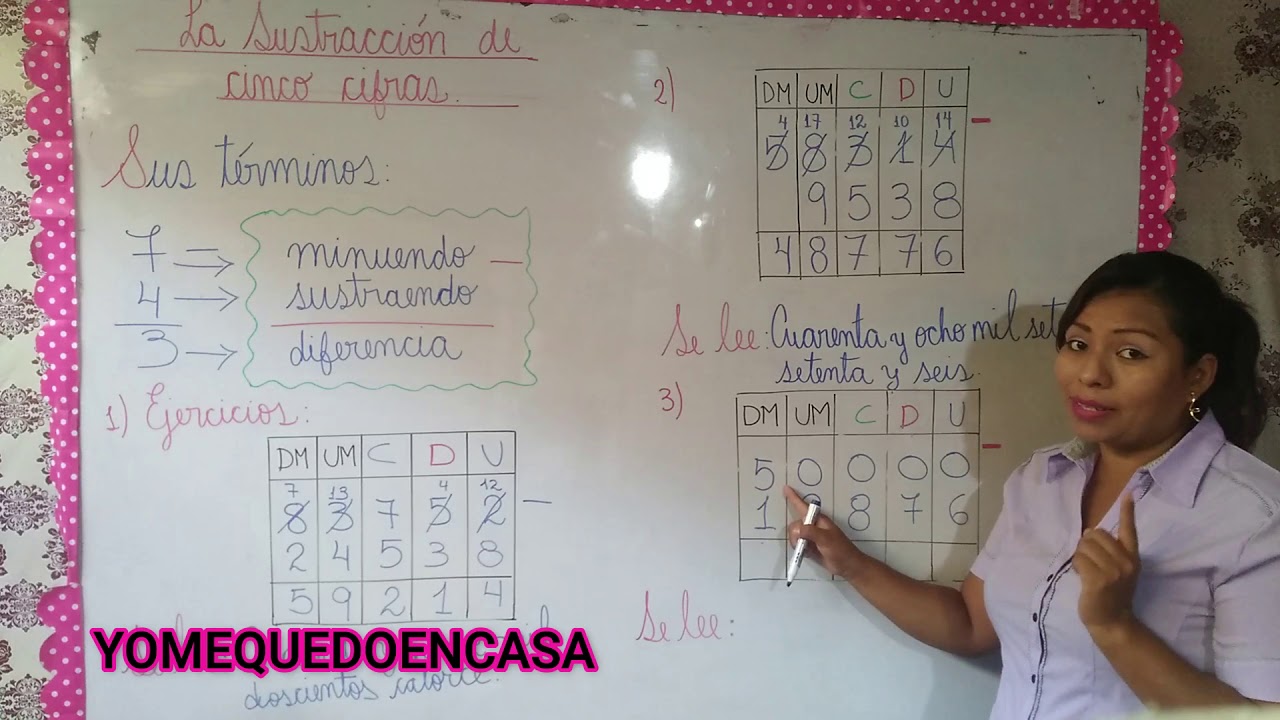 La Sustracción de
cinco cifras.
Sus términos:
7 → minuendo —
4 → sustraendo
3 → diferencia
1) Ejercicios:
DM UM C D U
7 13 4 12
8 3 7 5 2 —
2 4 5 3 8
5 9 2 1 4
YOMEQUEDOENCASA
doscientos catorce.
2)
DM UM C D U
4 17 12 10 14
5 8 3 1 4 —
9 5 3 8
4 8 7 7 6
Se lee: Cuarenta y ocho mil
setenta y seis.
3)
DM UM C D U
5 0 0 0 0 —
1 8 7 6
Se lee: